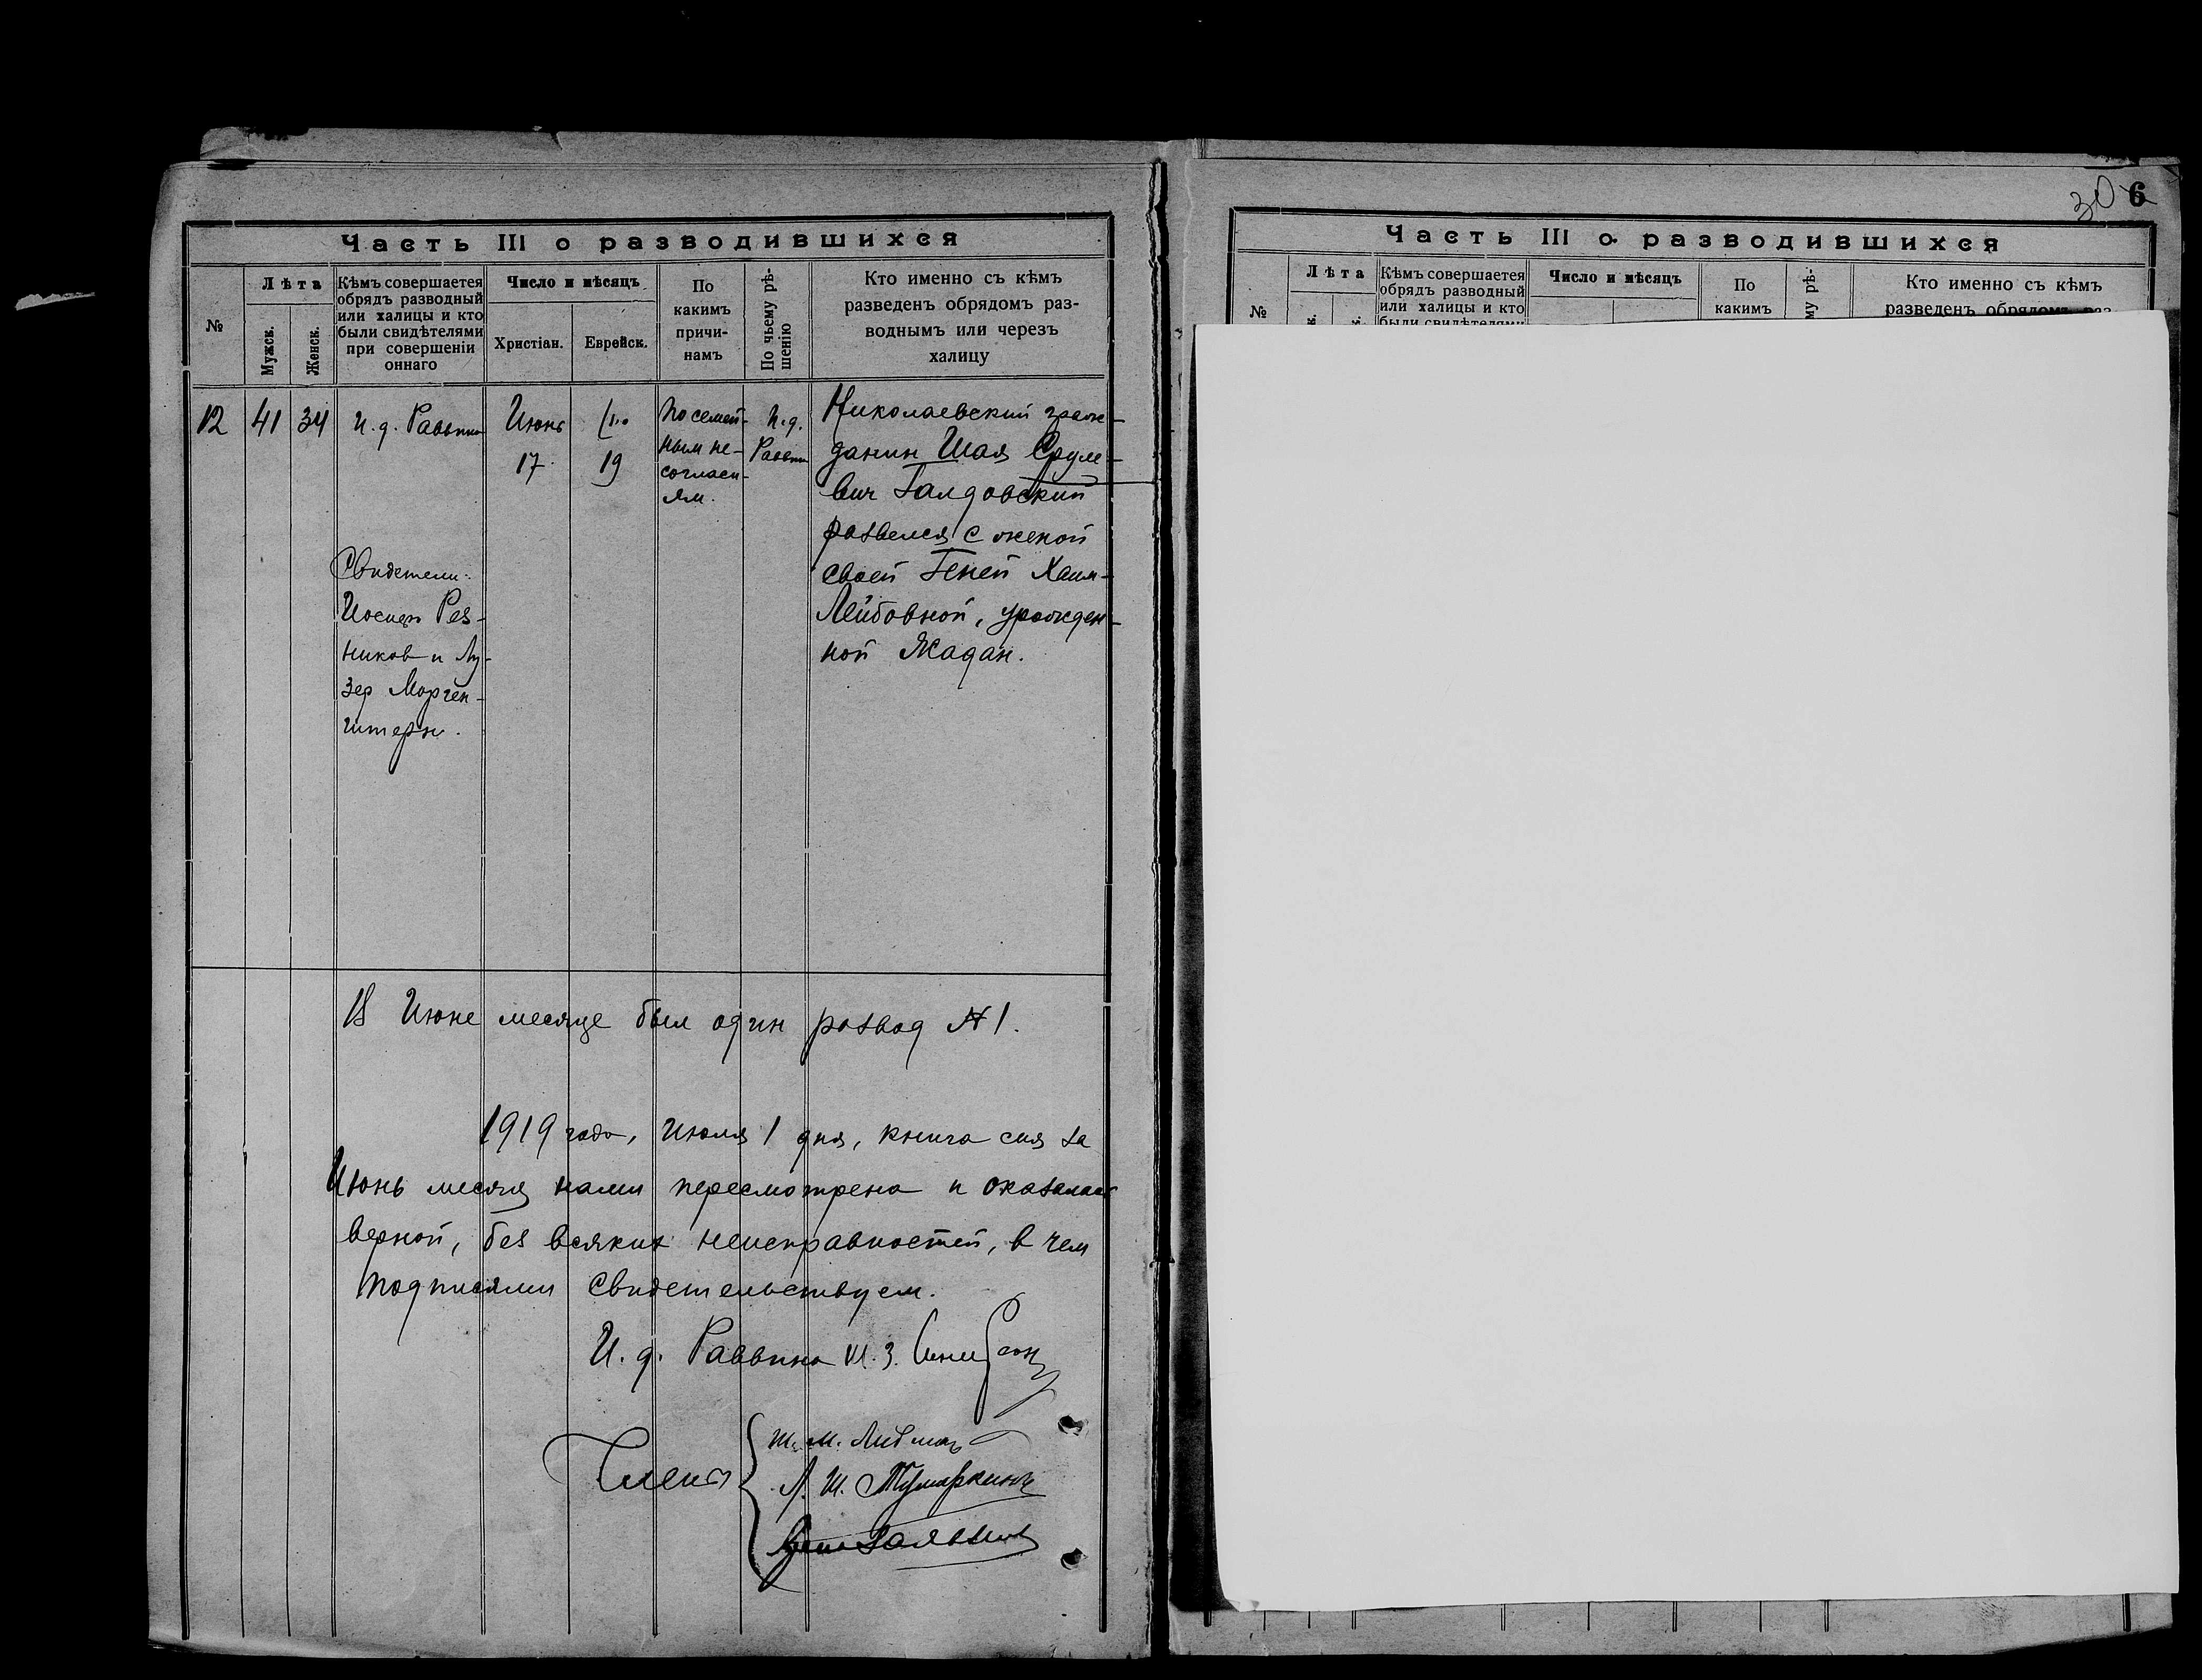 Часть III о разводившихся
№
Лѣта
Мужск.
Женск.
Кѣмъ совершается
обрядъ разводный
или халицы и кто
были свидѣтелями
при совершеніи
оннаго
Число и мѣсяцъ
Христіан.
Еврейск.
По
какимъ
причи-
намъ
По чьему рѣ-
шенію
Кто именно съ кѣмъ
разведенъ обрядомъ раз-
воднымъ или черезъ
халицу
12
41
34
И. д. Раввина
Свидетели:
Иосиф Рез-
ников и Лу-
зер Морген-
штерн.
Июнь
17
19
По семей-
ным не-
согласи-
ям.
И. д.
Раввин
Николаевский граж-
данин Шая Срулe-
вич Галдовский
развелся с женой
своей Геней Хаим-
Лейбовной, урожден-
ной Жадан.
В Июне месяце был один развод № 1.
1919 года, Июля 1 дня, книга сия за
Июнь месяц нами пересмотрена и оказалась
верной, без всяких неисправностей, в чем
подписями свидетельствуем.
И. д. Раввина Ш. З.
Члены
Ш. М. Либман
Л. Ш. Тумаркинъ
30
6
Часть III о разводившихся
№
Лѣта
Кѣмъ совершается
обрядъ разводный
или халицы и кто
были свидѣтелями
Число и мѣсяцъ
По
какимъ
Кто именно съ кѣмъ
разведенъ обрядомъ раз-